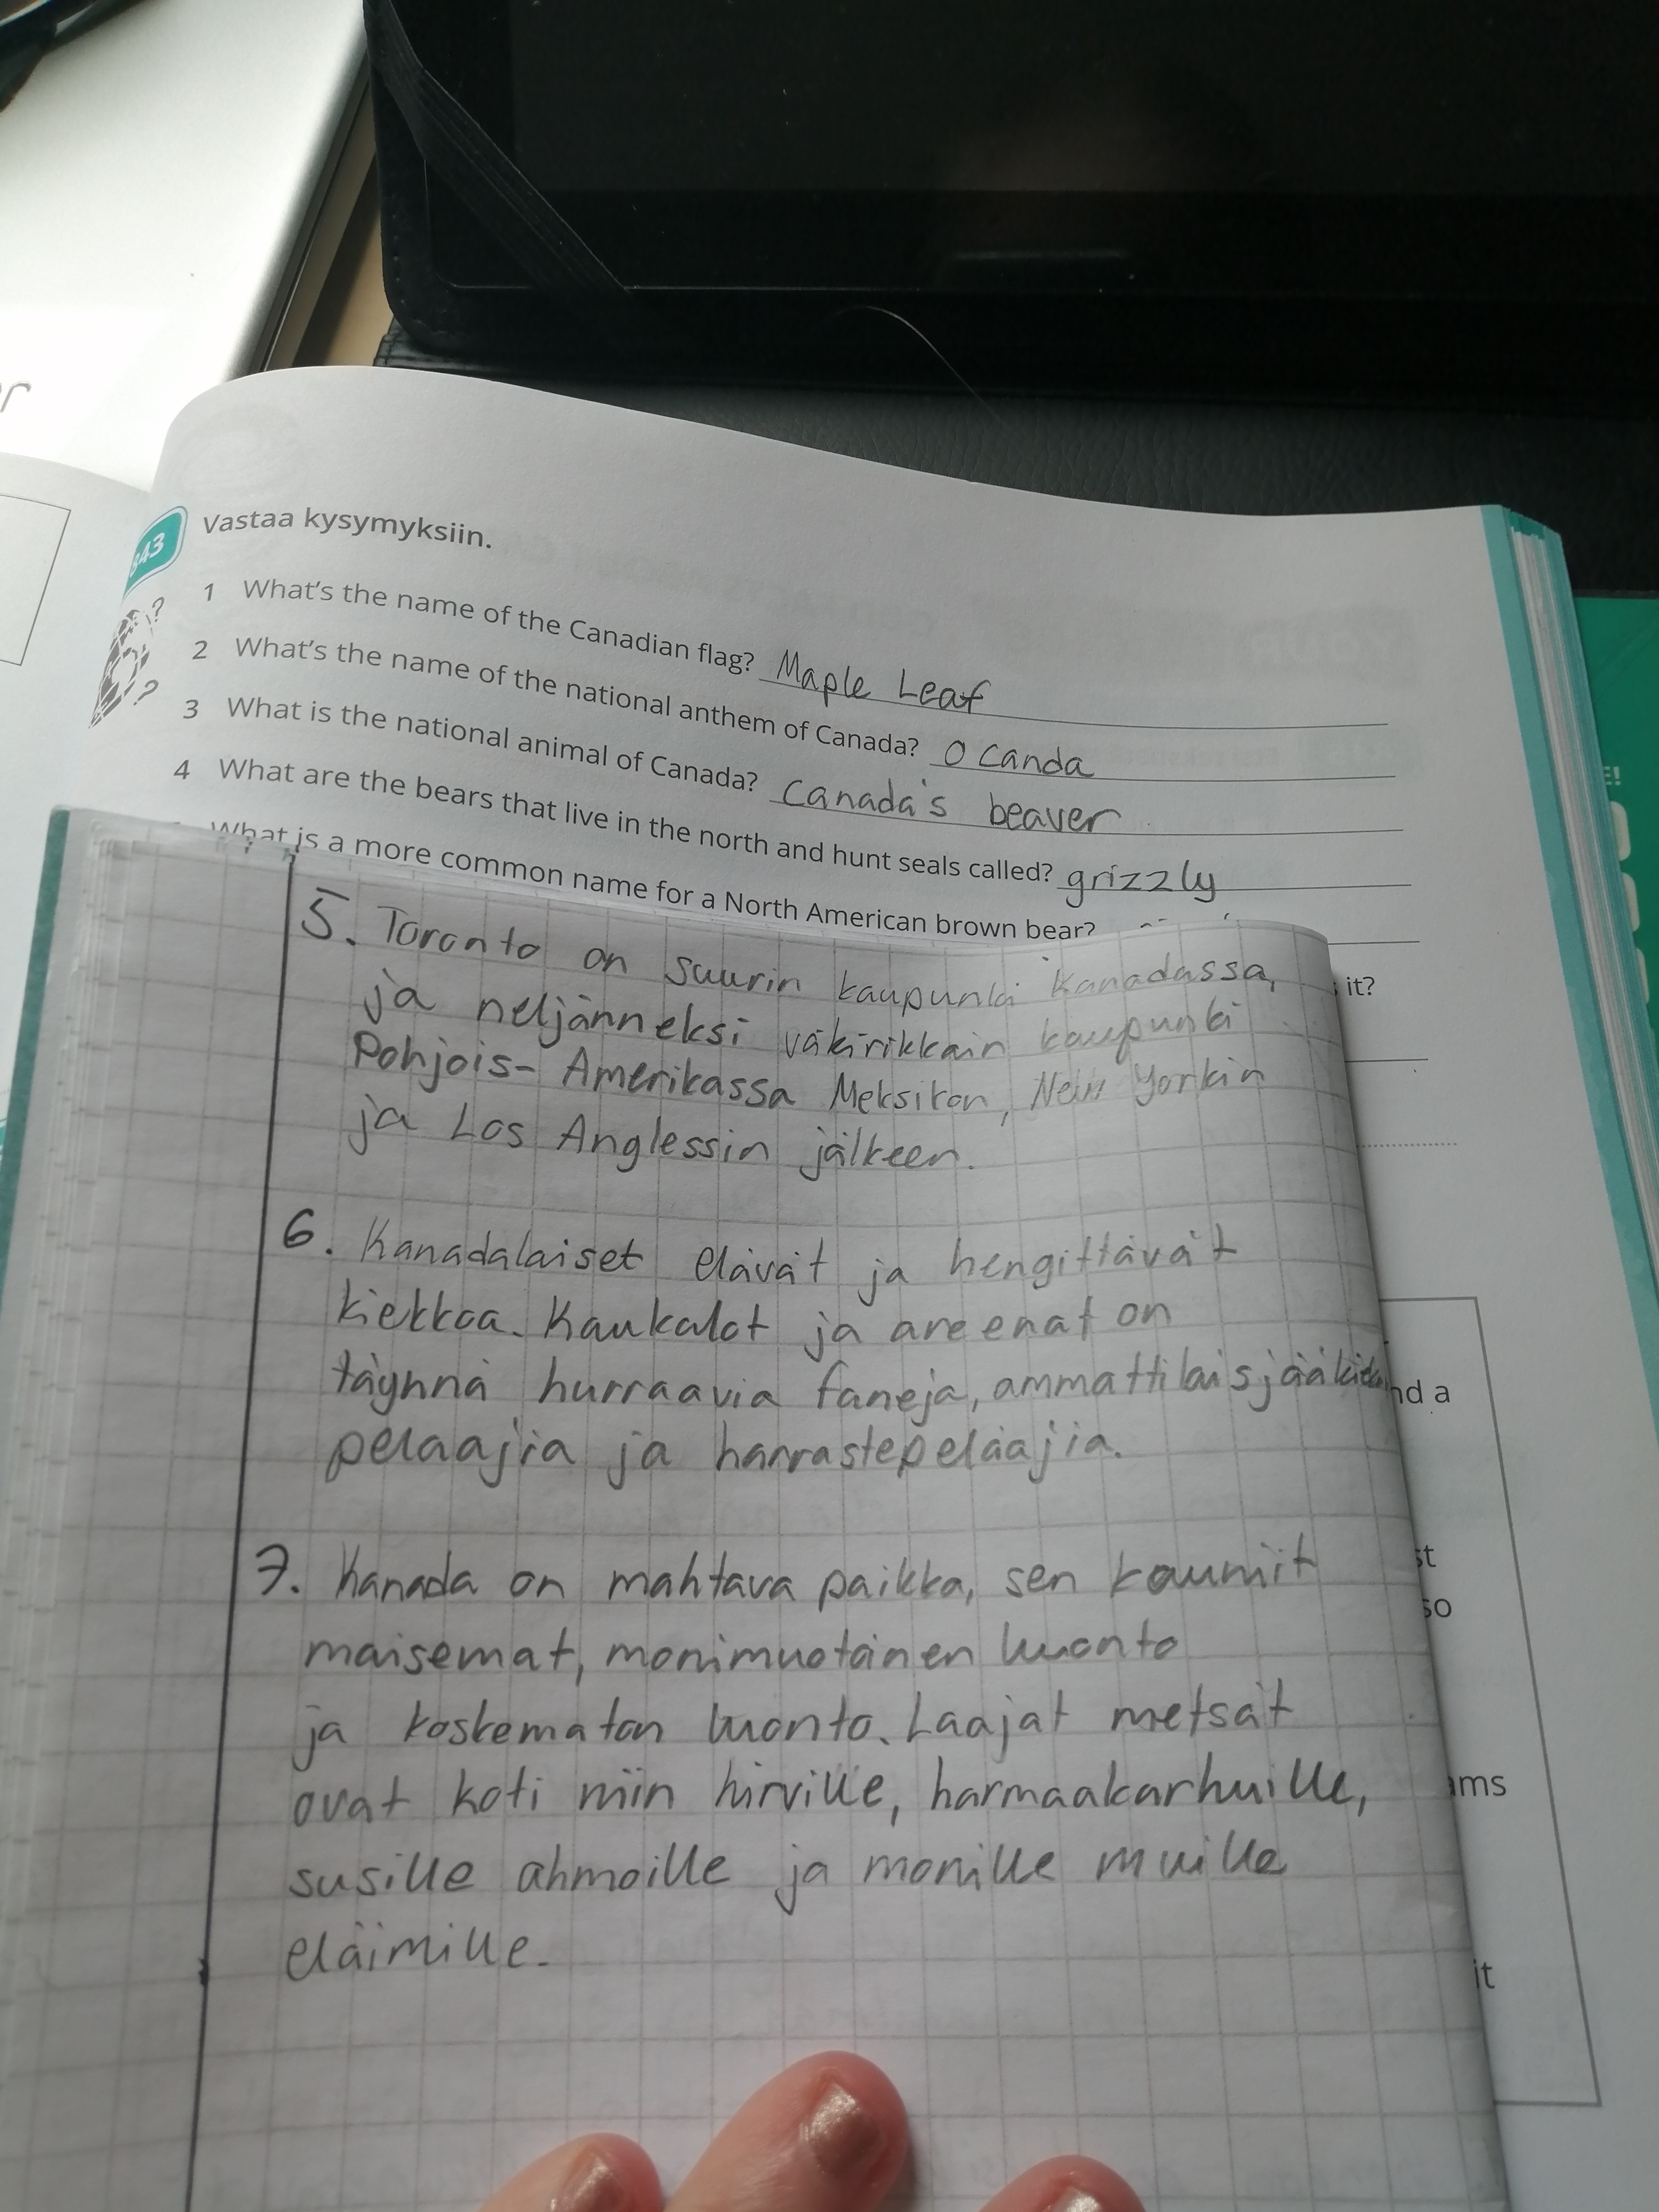 343 Vastaa kysymyksiin.
1 What's the name of the Canadian flag? Maple Leaf
2 What's the name of the national anthem of Canada? O Canda
3 What is the national animal of Canada? Canada's beaver
4 What are the bears that live in the north and hunt seals called? grizzly
What is a more common name for a North American brown bear?
it?
5. Toronto on suurin kaupunki Kanadassa,
ja neljänneksi väkirikkain kaupunki
Pohjois-Amerikassa Meksikon, New Yorkin
ja Los Anglessin jälkeen.
6. Kanadalaiset elävät ja hengittävät
kiekkoa. Kaukalot ja areenat on
täynnä hurraavia faneja, ammattilaisjääkiekko
pelaajia ja harrastepelaajia.
7. Kanada on mahtava paikka, sen kauniit
maisemat, monimuotoinen luonto
ja koskematon luonto. Laajat metsät
ovat koti niin hirville, harmaakarhuille,
susille ahmoille ja monille muille
eläimille.
nd a
st
so
ms
it